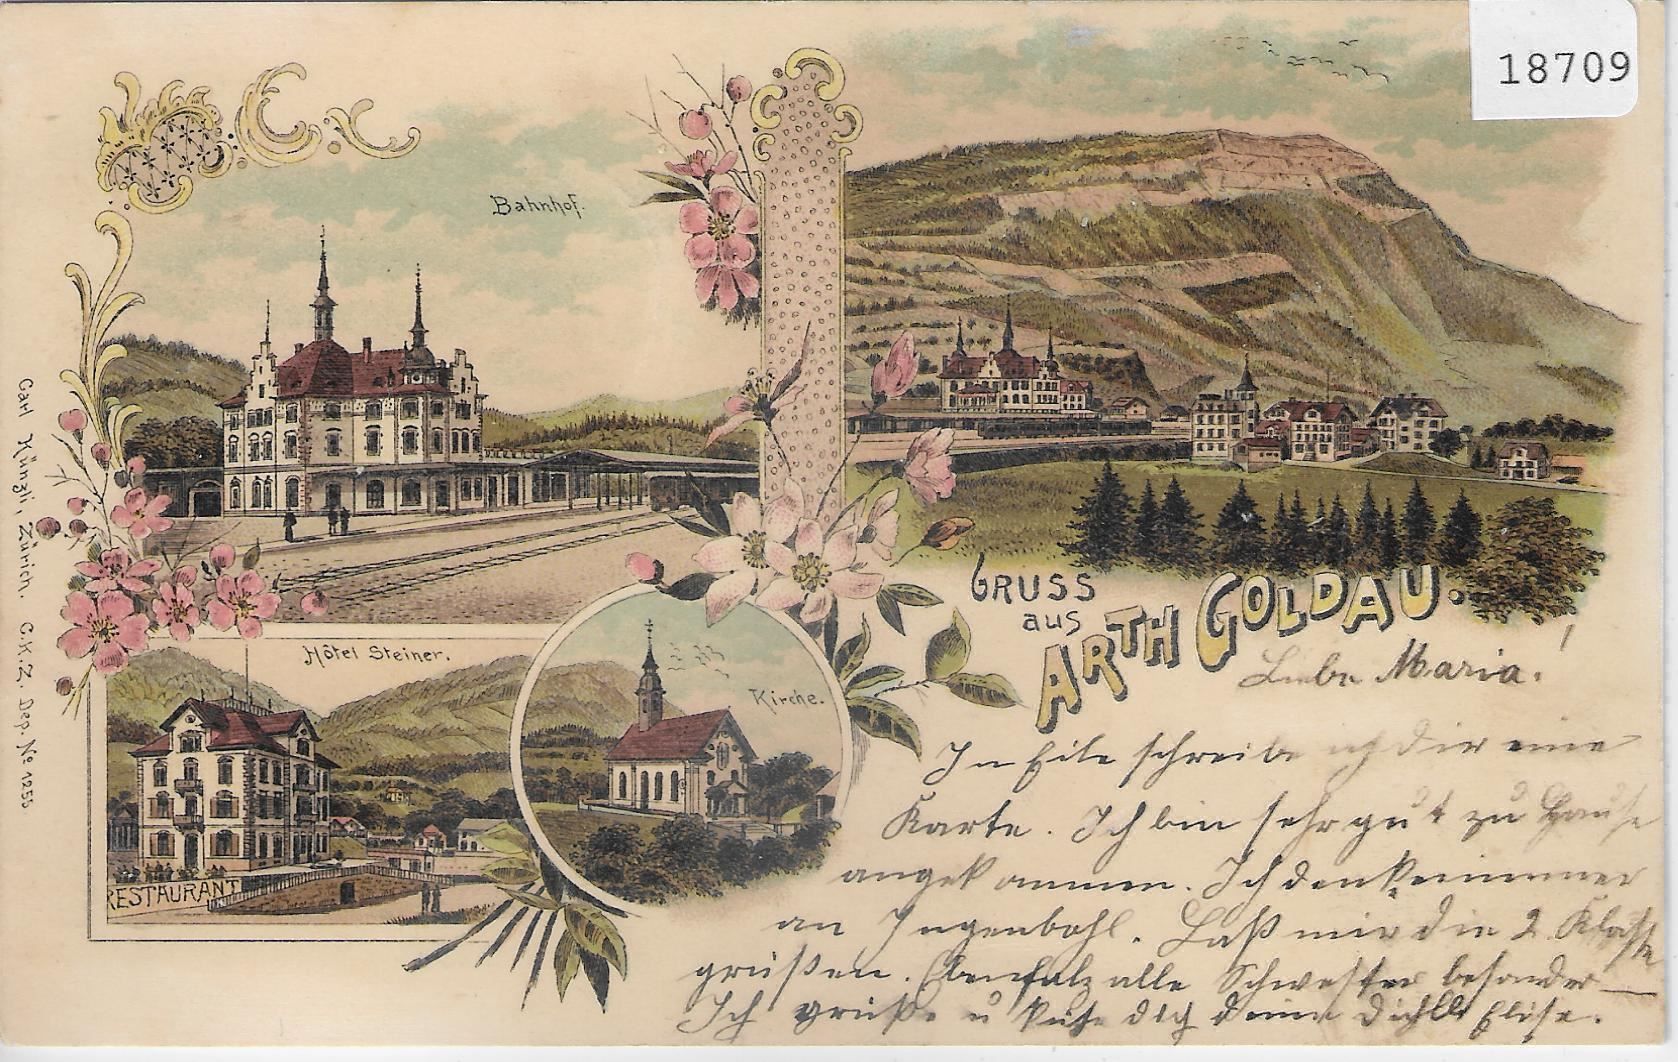 18709
Bahnhof.
Hôtel Steiner.
Kirche.
RESTAURANT
Carl Künzli, Zürich. C.K.Z. Dep. No 1255.
GRUSS
aus
ARTH GOLDAU.
Liebe Maria!
In Eile schreibe ich dir eine
Karte. Ich bin sehr gut zu Hause
angekommen. Ich denke immer
an Ingenbohl. Laß mir die 2. Klasse
grüßen. Ebenfalz alle Schwester besonder
Ich grüße u küße dich deine dich Elise.